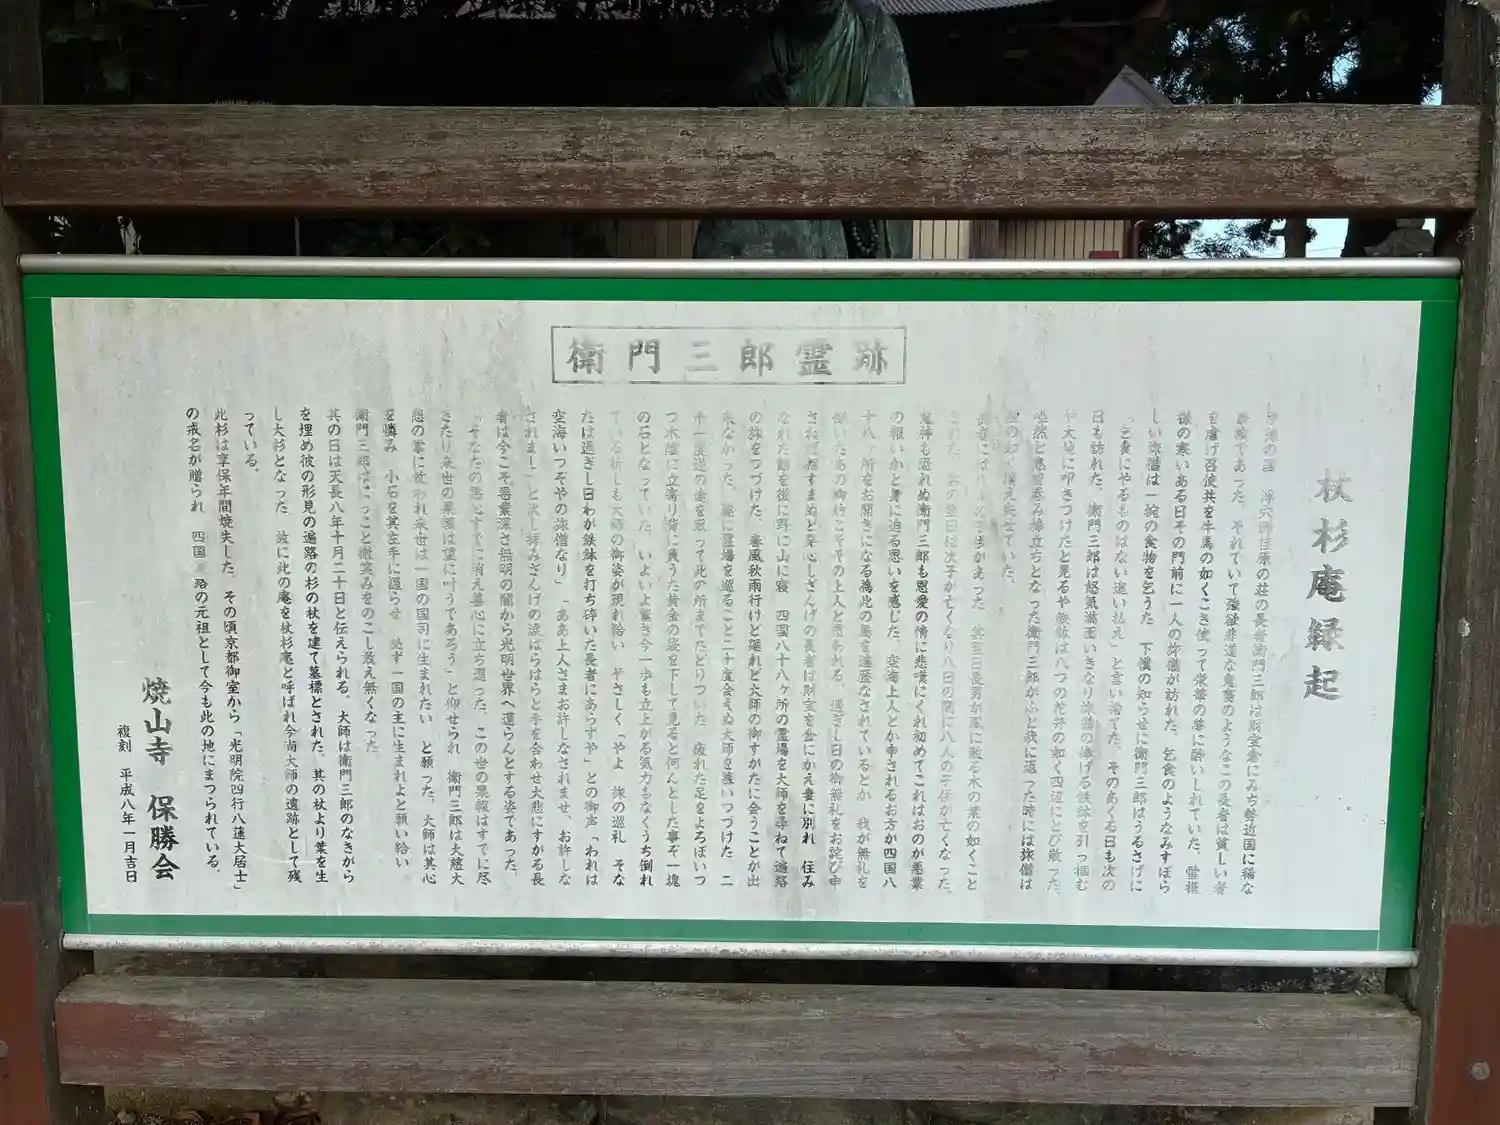 衛門三郎霊跡
杖杉庵縁起
の国 浮穴郡荏原の荘の長者衛門三郎は財宝倉にみち勢近国に稀な
豪族であった。それでいて強欲非道な鬼畜のようなこの長者は貧しい者
を虐げ召使共を牛馬の如くこき使って栄華の夢に酔いしれていた。雪模
様の寒いある日その門前に一人の旅僧が訪れた。乞食のようなみすぼら
しい旅僧は一椀の食物を乞うた 下僕の知らせに衛門三郎はうるさげに
「乞食にやるものはない追い払え」と言い捨てた。そのあくる日も次の
日も訪れた。衛門三郎は怒気満面いきなり旅僧の捧げる鉄鉢を引っ掴む
や大地に叩きつけたと見るや鉄鉢は八つの花弁の如く四辺にとび散った。
唖然と息を呑み棒立ちとなった衛門三郎がふと我に返った時には旅僧は
の如く消え失せていた。
長者には八人の子供があった 其翌日長男が風に散る木の葉の如くこと
きれた。其の翌日は次子が亡くなり八日の間に八人の子供が亡くなった。
鬼神も恐れぬ衛門三郎も恩愛の情に悲嘆にくれ初めてこれはおのが悪業
の報いかと身に迫る思いを感じた。空海上人とか申されるお方が四国八
十八ヶ所をお開きになる為此の島を遍歴なされているとか 我が無礼を
働いたあの御坊こそその上人と思われる。過ぎし日の御無礼をお詫び申
さねば相すまぬと発心しざんげの長者は財宝を金にかえ妻に別れ 住み
なれた館を後に野に山に寝 四国八十八ヶ所の霊場を大師を尋ねて遍路
の旅をつづけた。春風秋雨行けど廻れど大師の御すがたに会うことが出
来なかった。遂に霊場を巡ること二十度会えぬ大師を慕いつづけた 二
十一度逆の途を取って此の所までたどりついた 疲れた足をよろぼいつ
つ木陰に立寄り背に負うた黄金の袋を下して見ると何んとした事ぞ一塊
の石となっていた。いよいよ驚き今一歩も立上がる気力もなくうち倒れ
ている折しも大師の御姿が現れ給い やさしく「やよ 旅の巡礼 そな
たは過ぎし日わが鉄鉢を打ち砕いた長者にあらずや」との御声「われは
空海いつぞやの旅僧なり」「ああ上人さまお許しなされませ、お許しな
されまし」と伏し拝みざんげの涙はらはらと手を合わせ大悲にすがる長
者は今こそ悪業深さ無明の闇から光明世界へ還らんとする姿であった。
「そなたの悪心すでに消え善心に立ち還った。この世の果報はすでに尽
きたり来世の果報は望に叶うであろう」と仰せられ 衛門三郎は大慈大
悲の掌に救われ来世は一国の国司に生まれたい と願った。大師は其心
を憐み 小石を其左手に握らせ 必ず一国の主に生まれよと願い給い
衛門三郎はにっこと微笑みをのこし敢え無くなった
其の日は天長八年十月二十日と伝えられる。大師は衛門三郎のなきがら
を埋め彼の形見の遍路の杉の杖を建て墓標とされた。其の杖より葉を生
し大杉となった 故に此の庵を杖杉庵と呼ばれ今尚大師の遺跡として残
っている。
此杉は享保年間焼失した。その頃京都御室から「光明院四行八蓮大居士」
の戒名が贈られ 四国遍路の元祖として今も此の地にまつられている。
焼山寺 保勝会
復刻 平成八年一月吉日